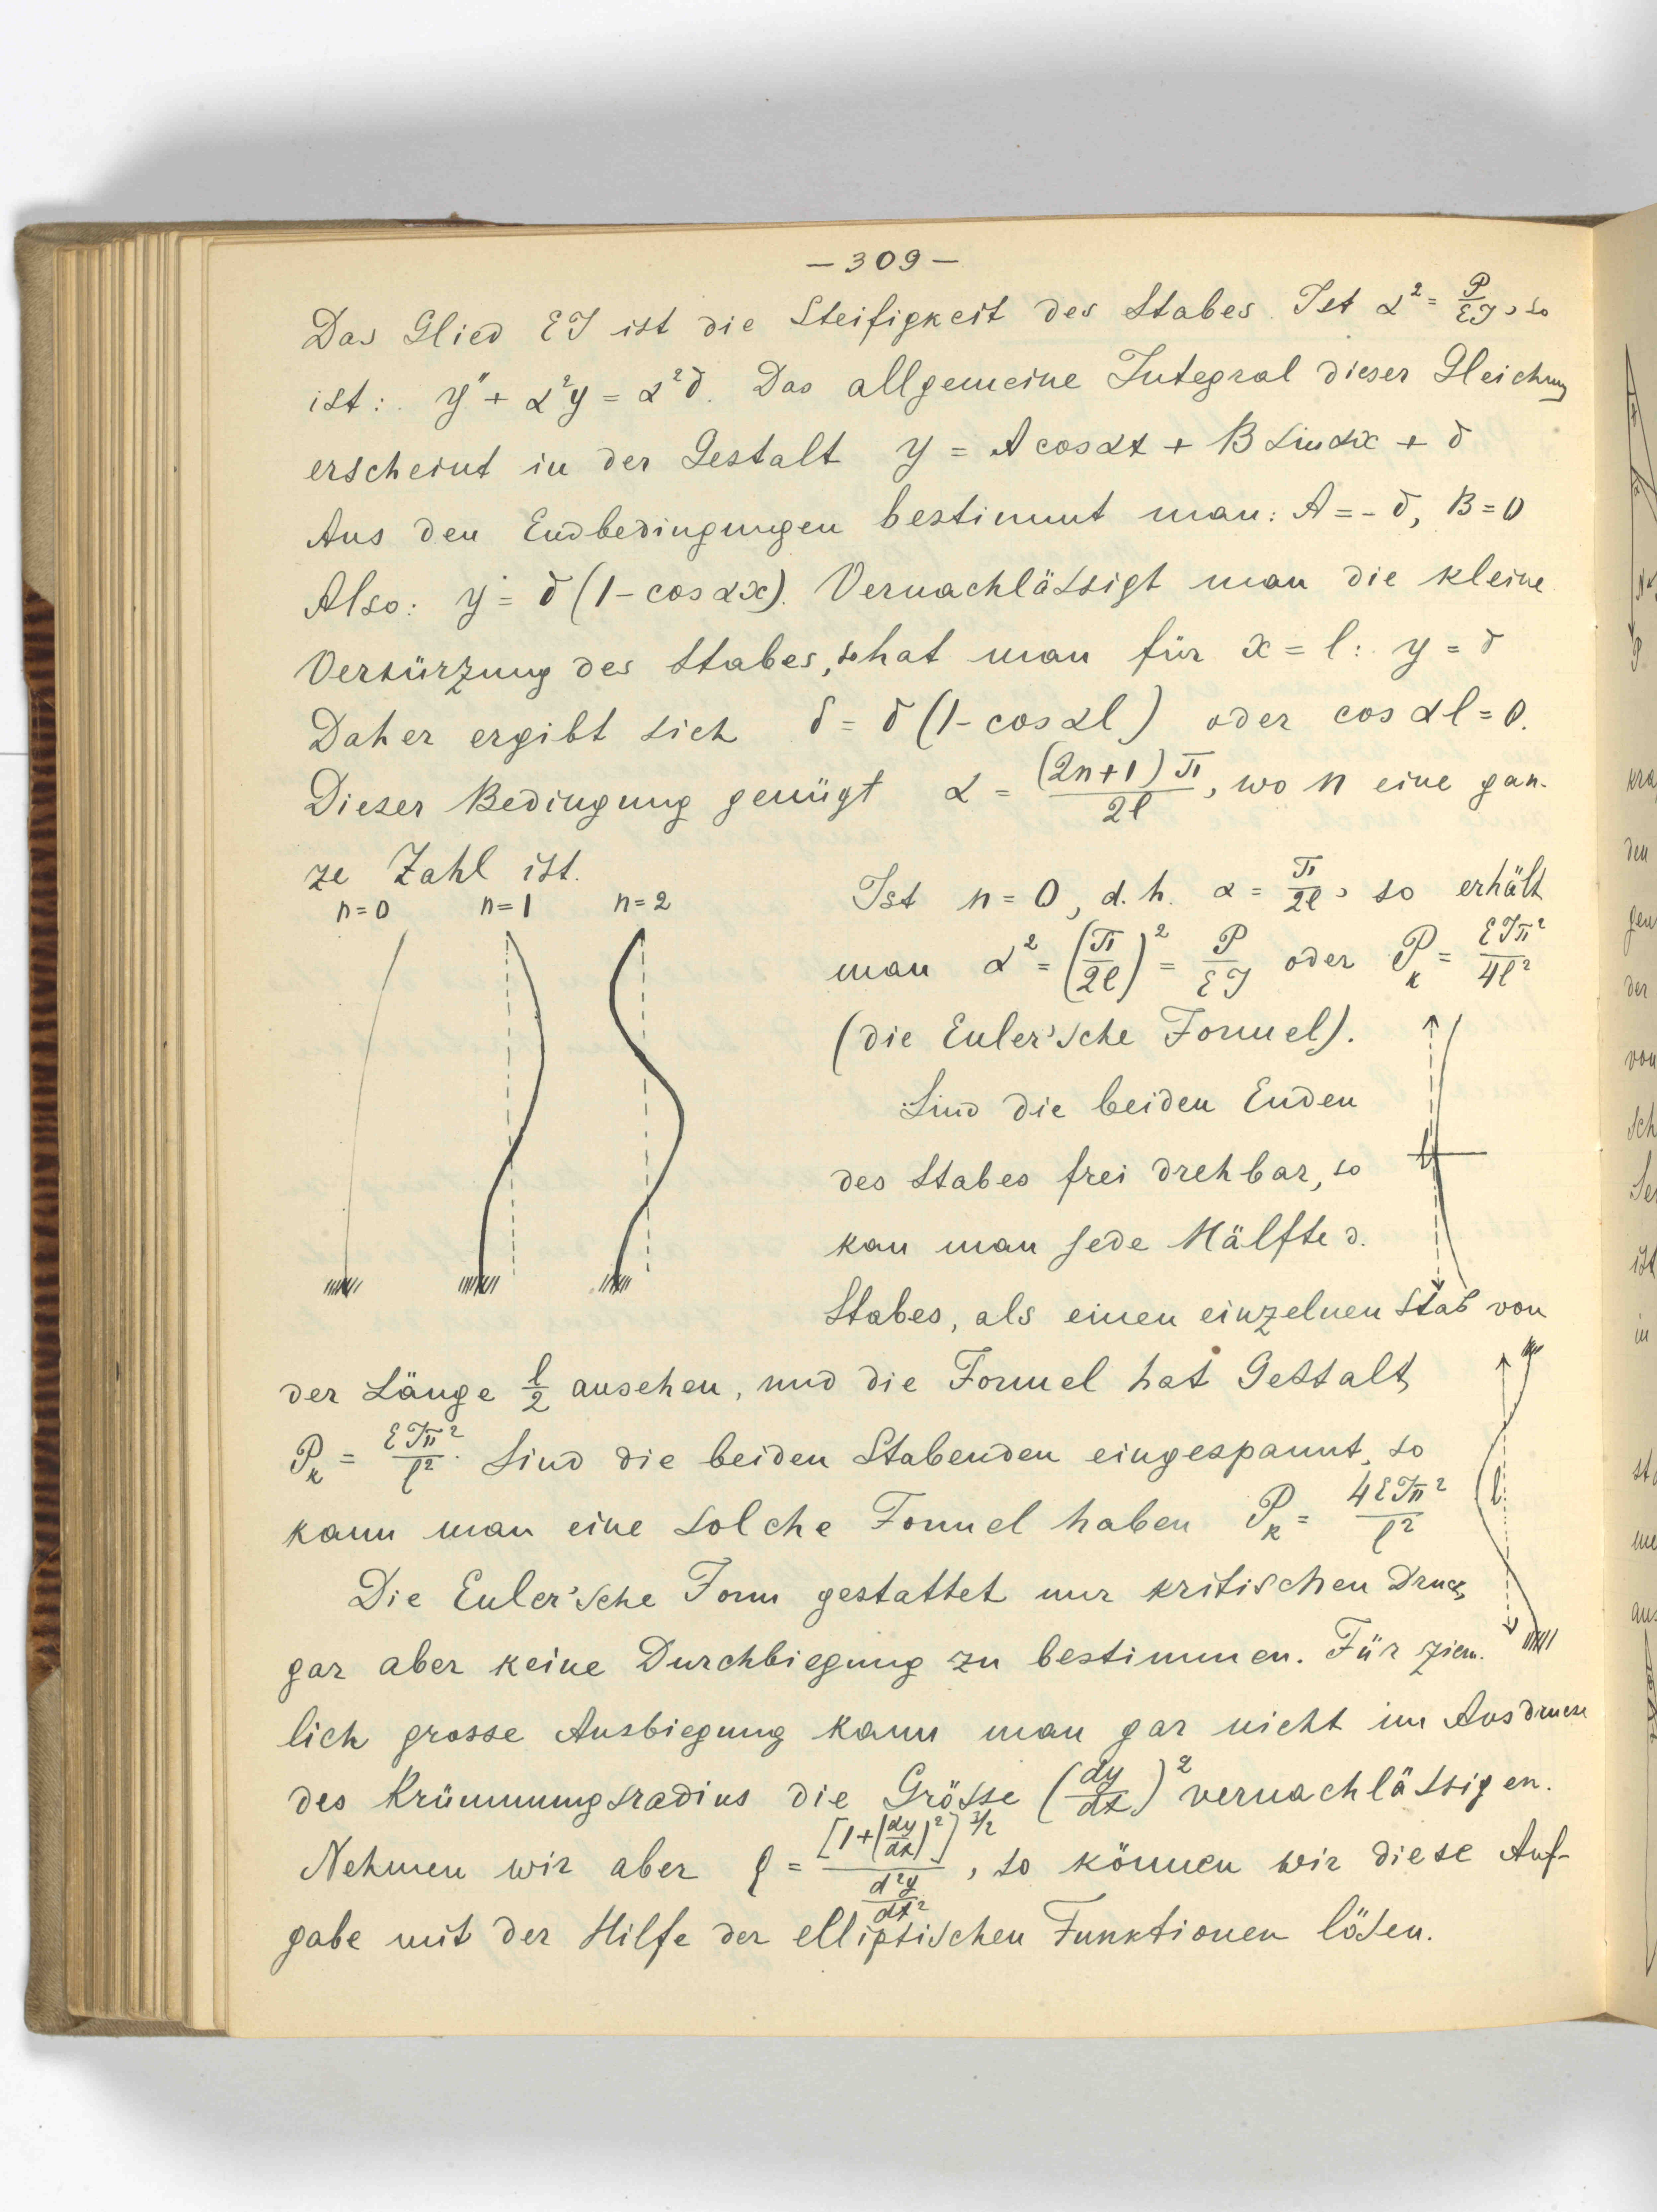 — 309 —
Das Glied EJ ist die Steifigkeit des Stabes. Ist α² = P/EJ, so
ist: y'' + α²y = α²δ. Das allgemeine Integral dieser Gleichung
erscheint in der Gestalt y = A cos αx + B sin αx + δ
Aus den Endbedingungen bestimmt man: A = - δ, B = 0
Also: y = δ (1 - cos αx). Vernachlässigt man die kleine
Verkürzung des Stabes, so hat man für x = l: y = δ
Daher ergibt sich δ = δ (1 - cos αl) oder cos αl = 0.
Dieser Bedingung genügt α = (2n+1)π/2l, wo n eine gan-
ze Zahl ist.
n=0 n=1 n=2
Ist n = 0, d. h. α = π/2l, so erhält
man α² = (π/2l)² = P/EJ oder P_k = EJπ²/4l²
(die Euler'sche Formel).
Sind die beiden Enden
des Stabes frei drehbar, so
kan man jede Hälfte d.
l
Stabes, als einen einzelnen Stab von
der Länge l/2 ansehen, und die Formel hat Gestalt
P_k = EJπ²/l². Sind die beiden Stabenden eingespannt, so
kann man eine solche Formel haben P_k = 4EJπ²/l²
l
Die Euler'sche Form gestattet nur kritischen Druck,
gar aber keine Durchbiegung zu bestimmen. Für ziem-
lich grosse Ausbiegung kann man gar nicht im Ausdrucke
des Krümmungsradius die Grösse (dy/dx)² vernachlässigen.
Nehmen wir aber ρ = [1+(dy/dx)²]^3/2 / d²y/dx², so können wir diese Auf-
gabe mit der Hilfe der elliptischen Funktionen lösen.